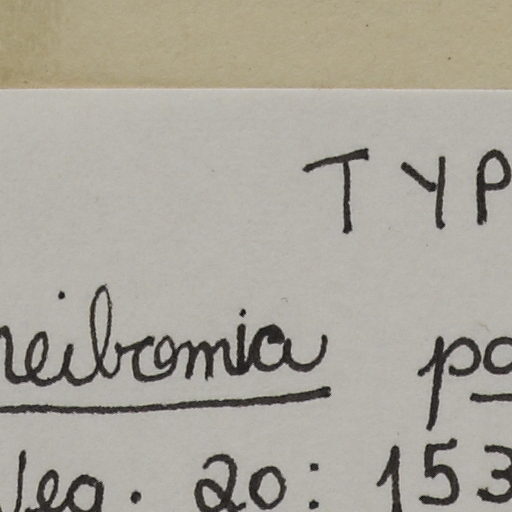 TYP
neibomia pa
Veg. 20: 153